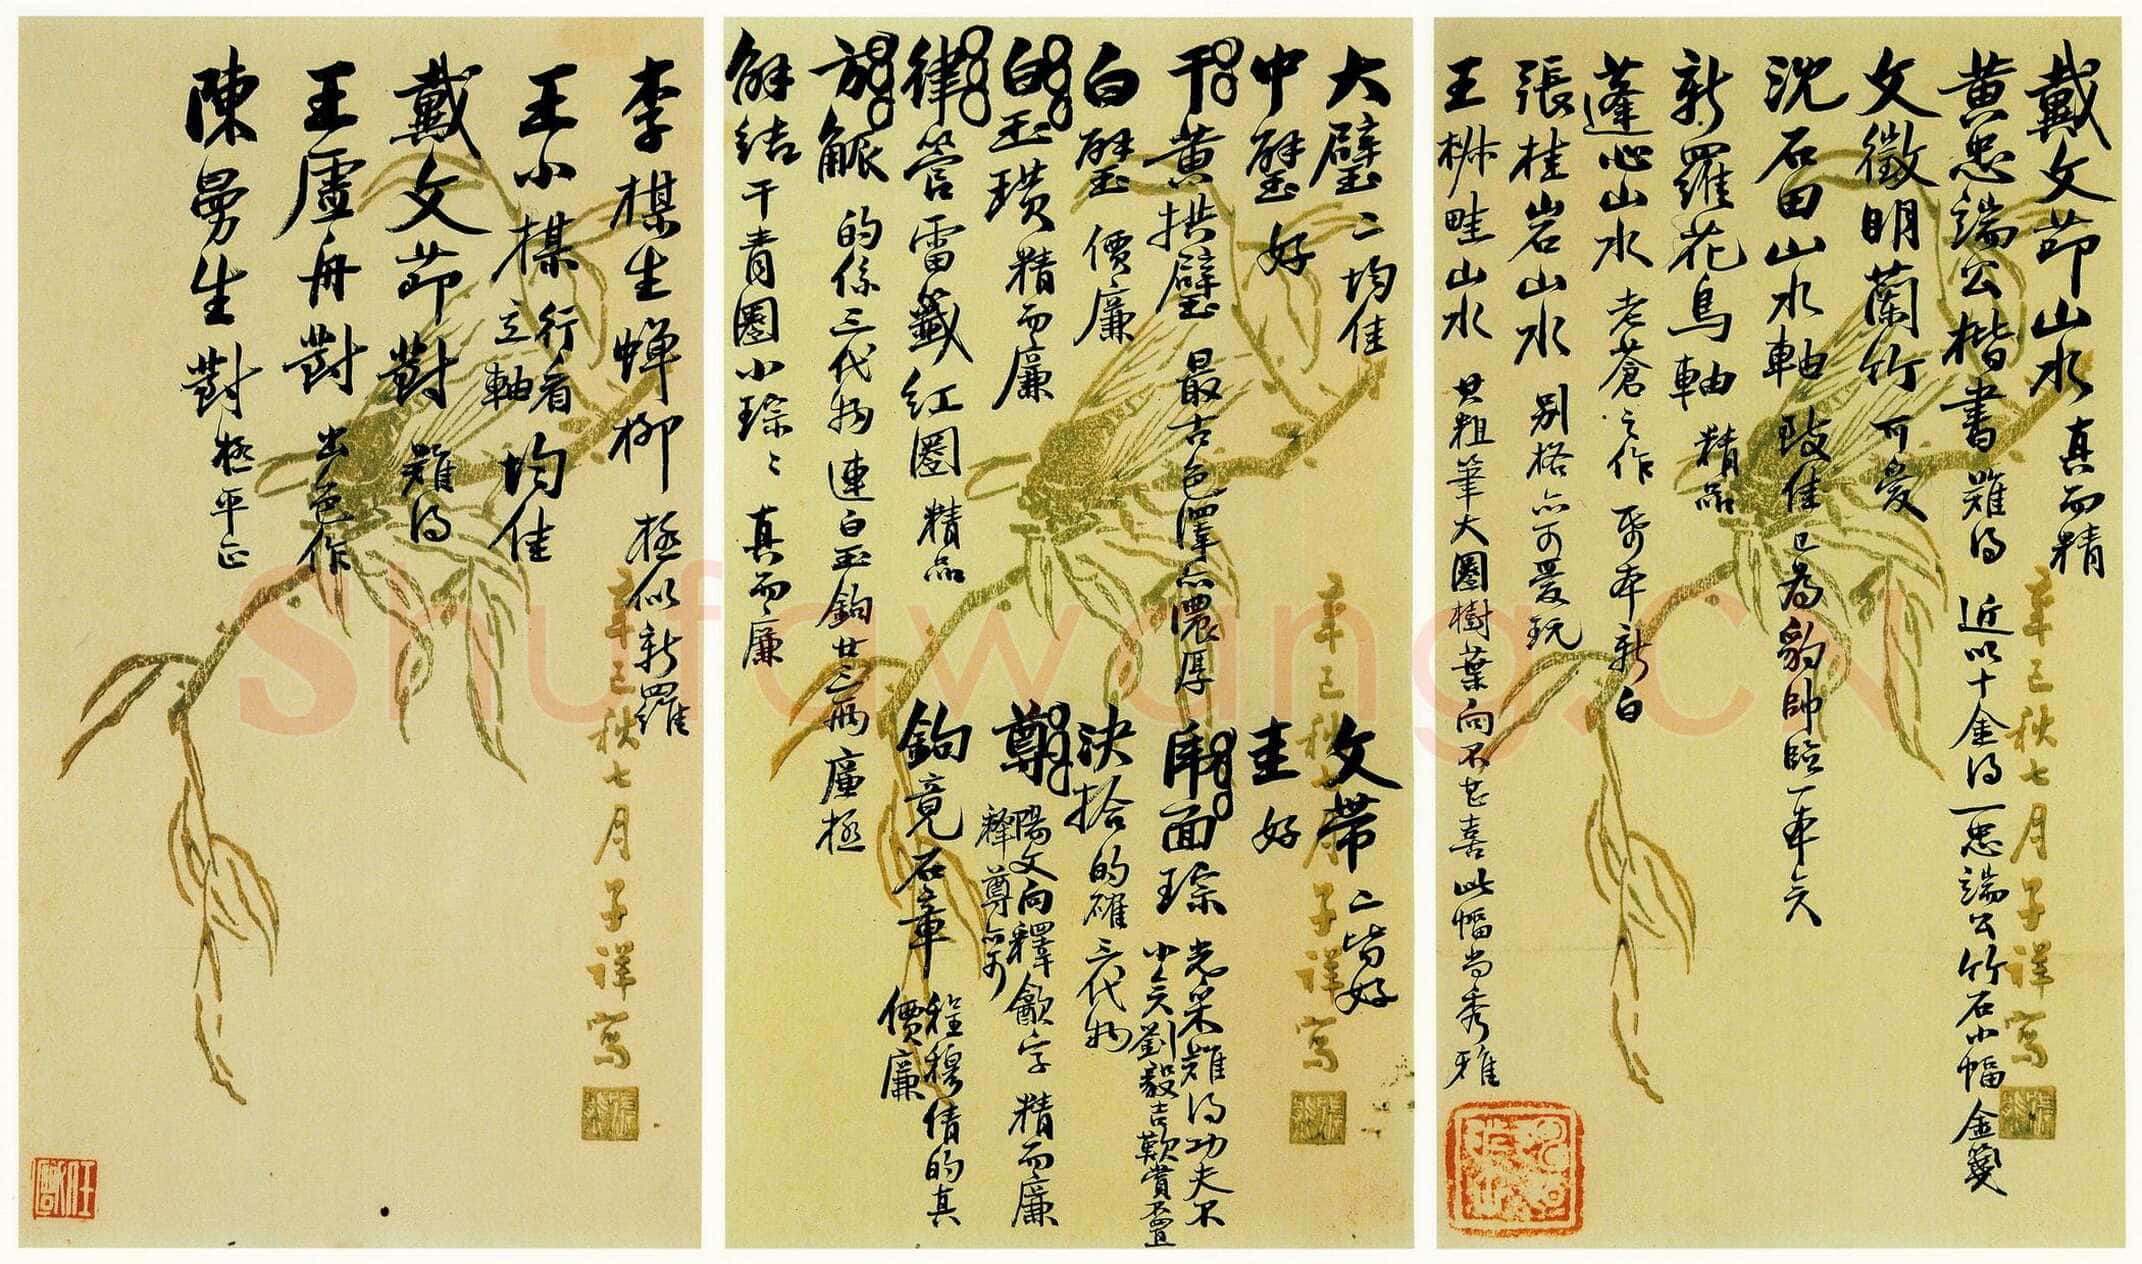 戴文節山水 真而精
黃忠端公楷書 難得 近以十金得一忠端公竹石小幅 金箋
文徵明蘭竹 可愛
沈石田山水軸 致佳 已為豹帥臨一本矣
新羅花鳥軸 精品
蓬心山水 老蒼之作 紙本新白
張桂岩山水 別格亦可愛玩
王椒畦山水 其粗筆大圈樹葉向不甚喜 此幅尚秀雅
大璧 二均佳
中璧 好
黃拱璧 最古色澤亦濃厚
白璧 價廉
白玉璜 精而廉
律管雷籤紅圈 精品
觿 的係三代物 連白玉鉤廿三兩 廉極
解結 干青圈小琮 真而廉
文帶 二皆好
圭 好
面琮 光采難得功夫不
小矣劉毅吉歎賞不置
決拾 的確三代物
尊 陽文向釋龢字 精而廉
釋尊亦可
鉤 竟石章 程穆倩的真
價廉
李楳生蟬柳 極似新羅
王小楳 行看
立軸 均佳
戴文節對 難得
王虛舟對 出色作
陳曼生對 極平正
辛巳秋七月子祥寫
辛巳秋七月子祥寫
辛巳秋七月子祥寫
Shufawang.CN